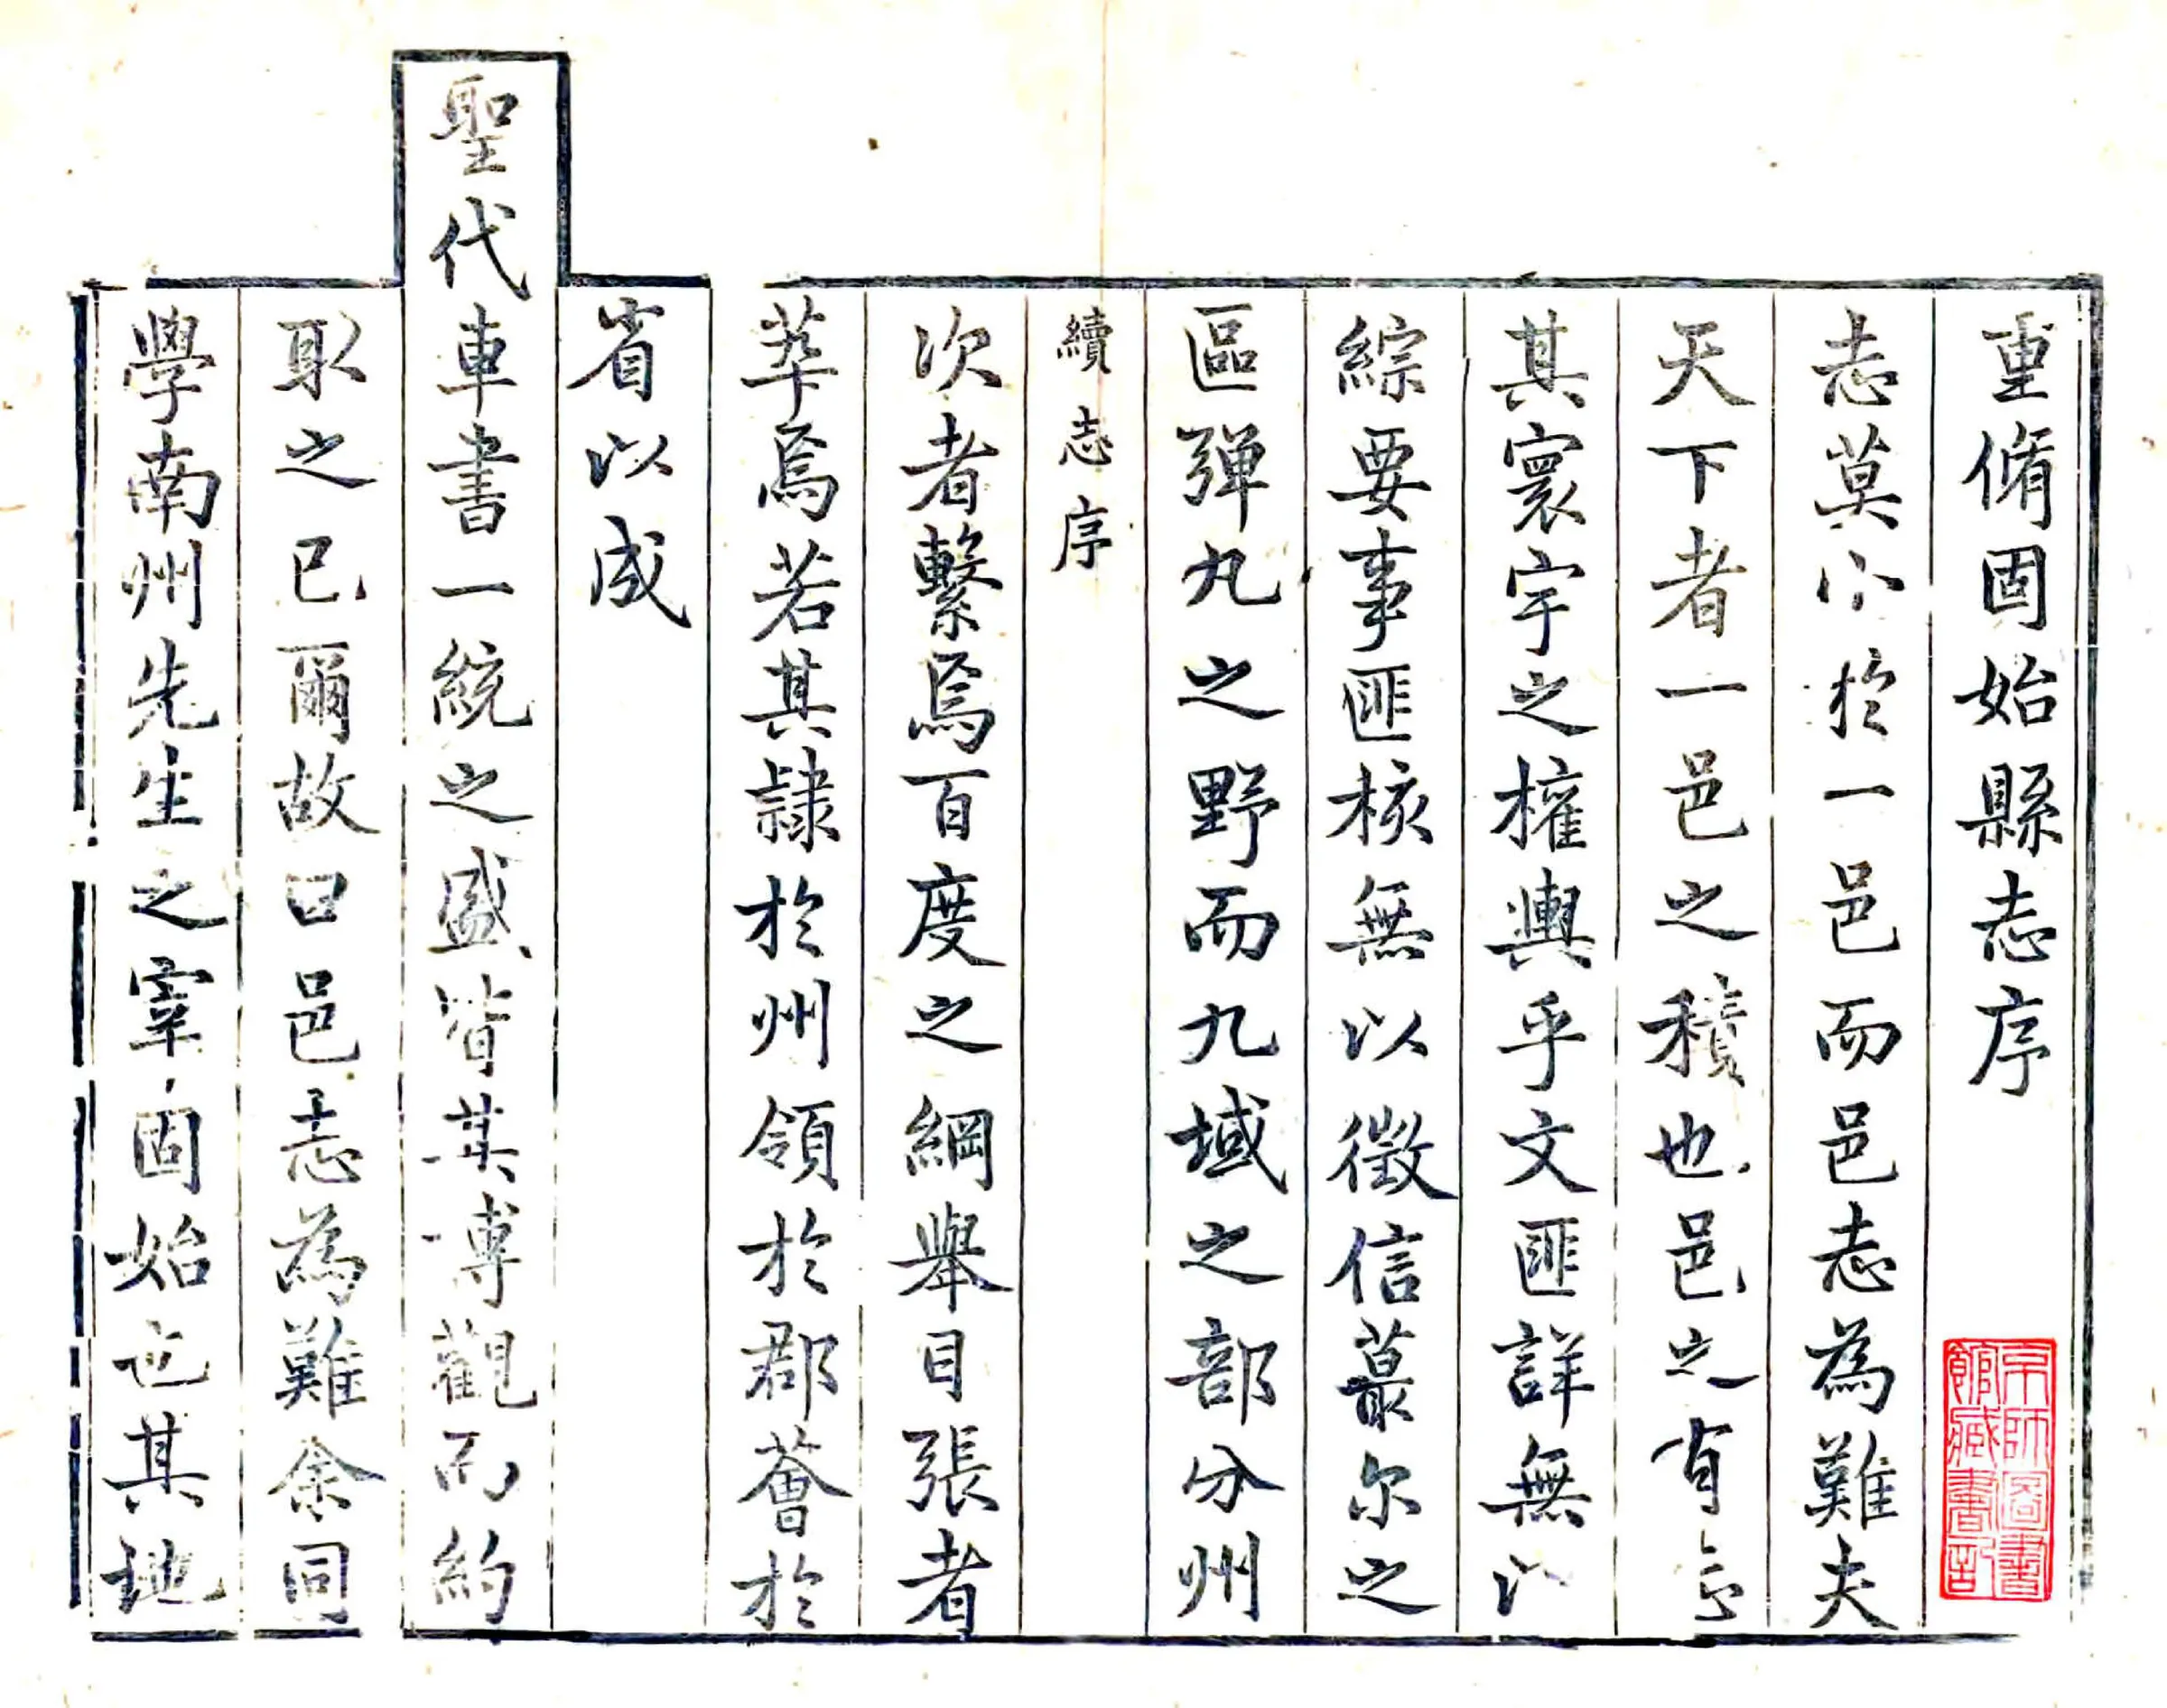 重脩固始縣志序
志莫小於一邑而邑志為難夫
天下者一邑之積也邑之有志
其寰宇之權輿乎文匪詳無以
綜要事匪核無以徵信蕞尔之
區彈丸之野而九域之部分州
續志序
次者繫焉百度之綱舉目張者
萃焉若其隷於州領於郡薈於
省以成
聖代車書一統之盛皆其博觀而約
取之已爾故曰邑志為難余同
學南州先生之宰固始也其地
京師圖書
館藏書記